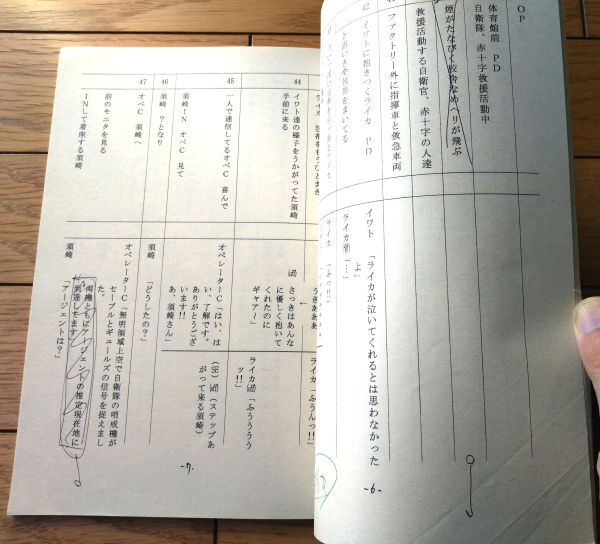 OP
体育館前　PD
自衛隊、赤十字救援活動中
煙がたなびく校舎なめヘリが飛ぶ
救援活動する自衛官、赤十字の人達
ファクトリー外に指揮車と救急車両
42
イワトに抱きつくライカ　PD
イワト
「ライカが泣いてくれるとは思わなかった
よ」
「…」
ライカ「ふっ!!」
-6-
44
イワト達の様子をうかがってた須崎
手前に来る
さっきはあんな
に優しく抱いて
くれたのに
ギャアー」
ライカ「ふうんっ!!」
ライカ「ふうううう
ッ!!」
45
一人で通信してるオペC　喜んで
須崎IN　オペC　見て
オペレーターC「はい、は
い、了解です。
ありがとうござ
います!!
あ、須崎さん」
(SE)(ステップあ
がって来る須崎)
46
須崎　?となり
須崎
「どうしたの?」
47
オペC　須崎へ
前のモニタを見る
INして着座する須崎
オペレーターC「無明領域上空で自衛隊の明戒機が
セーブルとギュールズの信号を捉えまし
た。
両機ともにアージェントの推定現在地に
到達してます」
須崎
「アージェントは?」
-7-